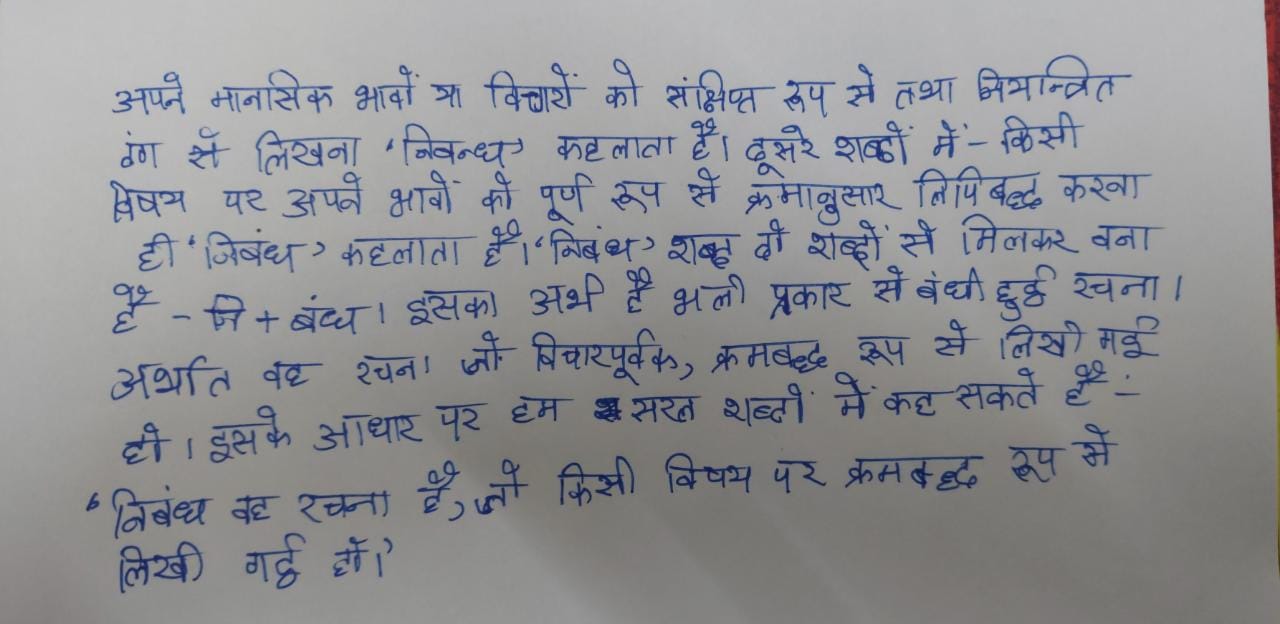 अपने मानसिक भावों या विचारों को संक्षिप्त रूप से तथा नियन्त्रित
ढंग से लिखना 'निबन्ध' कहलाता है। दूसरे शब्दों में - किसी
विषय पर अपने भावों को पूर्ण रूप से क्रमानुसार लिपिबद्ध करना
ही 'निबंध' कहलाता है। 'निबंध' शब्द दो शब्दों से मिलकर बना
है - नि + बंध। इसका अर्थ है भली प्रकार से बंधी हुई रचना।
अर्थात वह रचना जो विचारपूर्वक, क्रमबद्ध रूप से लिखी गई
हो। इसके आधार पर हम सरल शब्दों में कह सकते हैं :-
'निबंध वह रचना है, जो किसी विषय पर क्रमबद्ध रूप से
लिखी गई हो।'